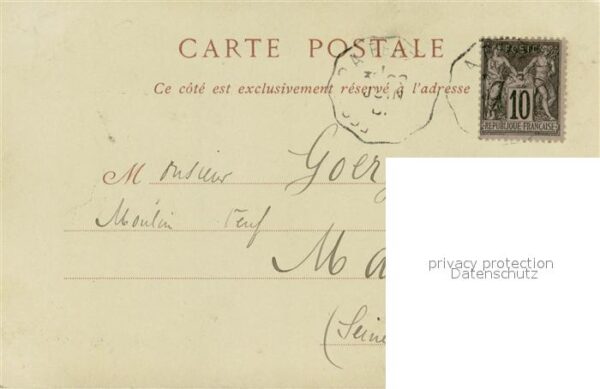 CARTE POSTALE
Ce côté est exclusivement réservé à l'adresse
POSTES
10
RÉPUBLIQUE FRANÇAISE
JUIN
Monsieur Goerg
Moulin Neuf
Ma
(Seine
privacy protection
Datenschutz